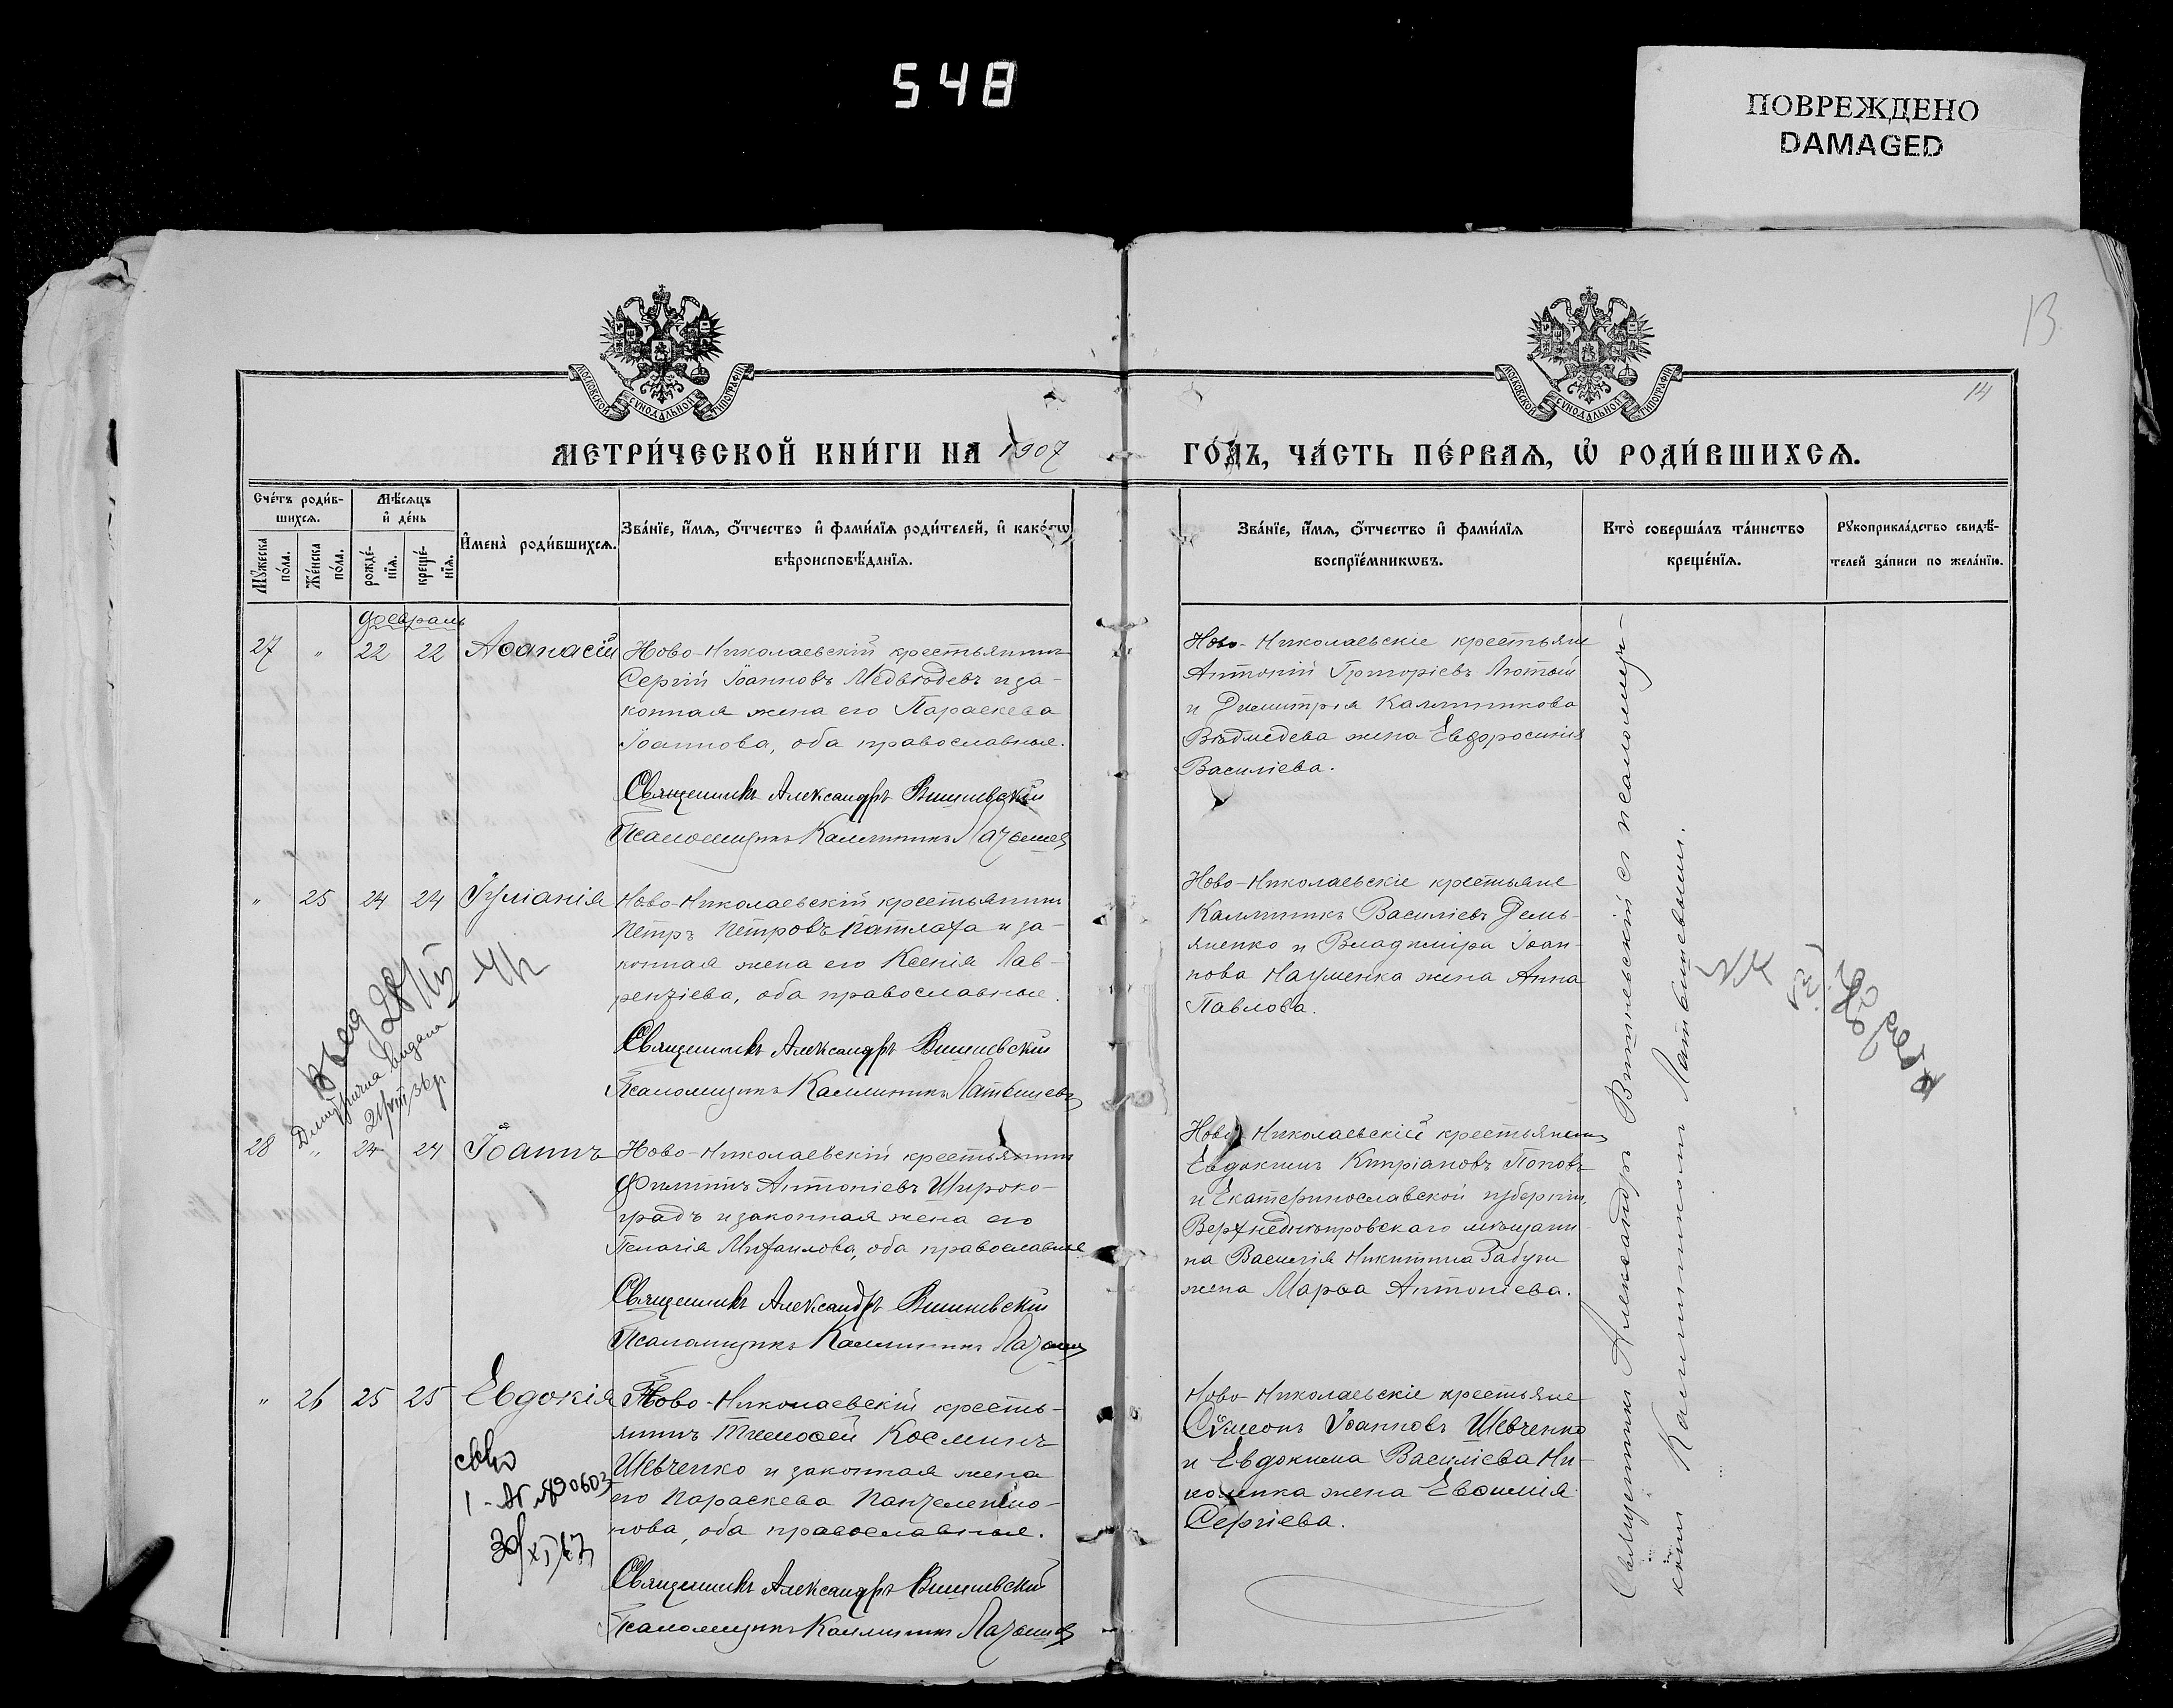 548
ПОВРЕЖДЕНО
DAMAGED
13
14
МОСКОВСКОЙ СѴНОДАЛЬНОЙ ТИПОГРАФІИ
МОСКОВСКОЙ СѴНОДАЛЬНОЙ ТИПОГРАФІИ
МЕТРИ́ЧЕСКОЙ КНИ́ГИ НА 1907
ГО́ДЪ, ЧА́СТЬ ПЕ́РВАѦ, Ѡ҆ РОДИ́ВШИХСѦ.
Сче́тъ роди́в-
шихсѧ.
Мѣ́сѧцъ
и҆ де́нь
Мꙋ́жеска
по́ла.
Же́нска
по́ла.
рожде́-
нїѧ.
креще́-
нїѧ.
И҆мена̀ роди́вшихсѧ.
Зва́нїе, и҆́мѧ, ѻ҆́тчество и҆ фами́лїѧ роди́телей, и҆ како́гѡ
вѣроисповѣ́данїѧ.
Зва́нїе, и҆́мѧ, ѻ҆́тчество и҆ фами́лїѧ
воспрїе́мникѡвъ.
Кто̀ соверша́лъ та́инство
креще́нїѧ.
Рꙋкоприкла́дство свидѣ́-
телей за́писи по жела́нїю.
Февраль
27 " 22 22 Аѳанасій
Ново-Николаевскій крестьянинъ
Сергій Іоанновъ Медвѣдевъ и за-
конная жена его Параскева
Іоаннова, оба православные.
Священникъ Александръ Вишневскій
Псаломщикъ Каллиникъ Латышев
Ново-Николаевскіе крестьяне
Антоній Григоріевъ Лютый
и Димитрія Каллиникова
Вѣдмедева жена Евфросинія
Василіева.
" 25 24 24 Іуліанія
Ново-Николаевскій крестьянинъ
Петръ Петровъ Патлаха и за-
конная жена его Ксенія Лав-
рентіева, оба православные.
Священникъ Александръ Вишневскій
Псаломщикъ Каллиникъ Латышевъ
Ново-Николаевскіе крестьяне
Каллиникъ Василіевъ Демь-
яненко и Владиміра Іоан-
нова Науменка жена Анна
Павлова.
видана
21/VIII 36р
28 " 24 24 Іоаннъ
Ново-Николаевскій крестьянинъ
Филиппъ Антоніевъ Широко-
градъ и законная жена его
Пелагія Михаилова, оба православные
Священникъ Александръ Вишневскій
Псаломщикъ Каллиникъ Латыш
Ново-Николаевскій крестьянинъ
Евдокимъ Кипріановъ Поповъ
и Екатеринославской губерніи,
Верхнеднѣпровскаго мѣщани-
на Василія Никитина Забуги
жена Марѳа Антоніева.
" 26 25 25 Евдокія
Ново-Николаевскій кресть-
янинъ Тимоѳей Косминъ
Шевченко и законная жена
его Параскева Пантелеимо-
нова, оба православные.
Священникъ Александръ Вишневскій
Псаломщикъ Каллиникъ Латышев
Ново-Николаевскіе крестьяне
Сѵмеонъ Іоанновъ Шевченко
и Евдокима Василіева Ни-
коленка жена Евѳимія
Сергіева.
Священникъ Александръ Вишневскій съ псаломщи-
комъ Каллиникомъ Латышевымъ.